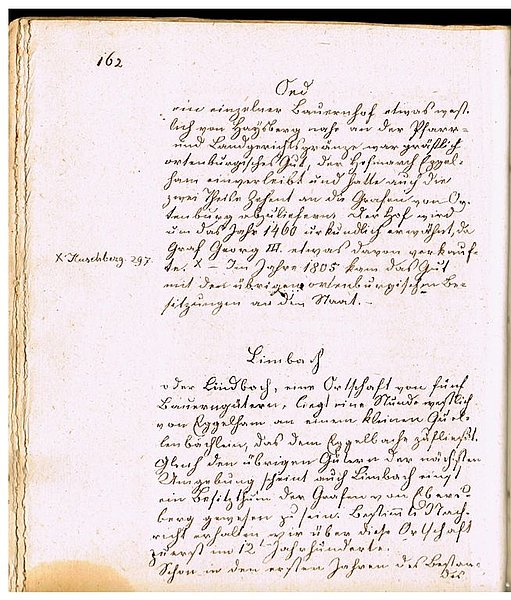 162
Oed
ein einzelner Bauernhof etwas west-
lich von Haysberg nahe an der Pfarr-
und Landgerichtsgränze war gräflich
ortenburgisches Gut, der Hofmarch Eggel-
ham einverleibt und hatte auch die
zwei Theile Zehent an die Grafen von Or-
tenburg abzuliefern. Der Hof wird
um das Jahr 1460 urkundlich erwähnt, da
Graf Georg III. etwas davon verkauf-
te. X – Im Jahre 1805 kam das Gut
X. Huschberg. 297.
mit den übrigen ortenburgischen Be-
sitzungen an den Staat. –
Limbach
oder Lindbach, eine Ortschaft von fünf
Bauerngütern, liegt eine Stunde westlich
von Eggelham an einem kleinen Quel-
lenbächlein, das dem Eggelbache zufließt.
Gleich den übrigen Gütern der nächsten
Umgebung scheint auch Limbach einst
ein Besitzthum der Grafen von Ebers-
berg gewesen zu sein. Bestimmte Nach-
richt erhalten wir über diese Ortschaft
zuerst im 12t Jahrhunderte.
Schon in den ersten Jahren des Bestan-
des